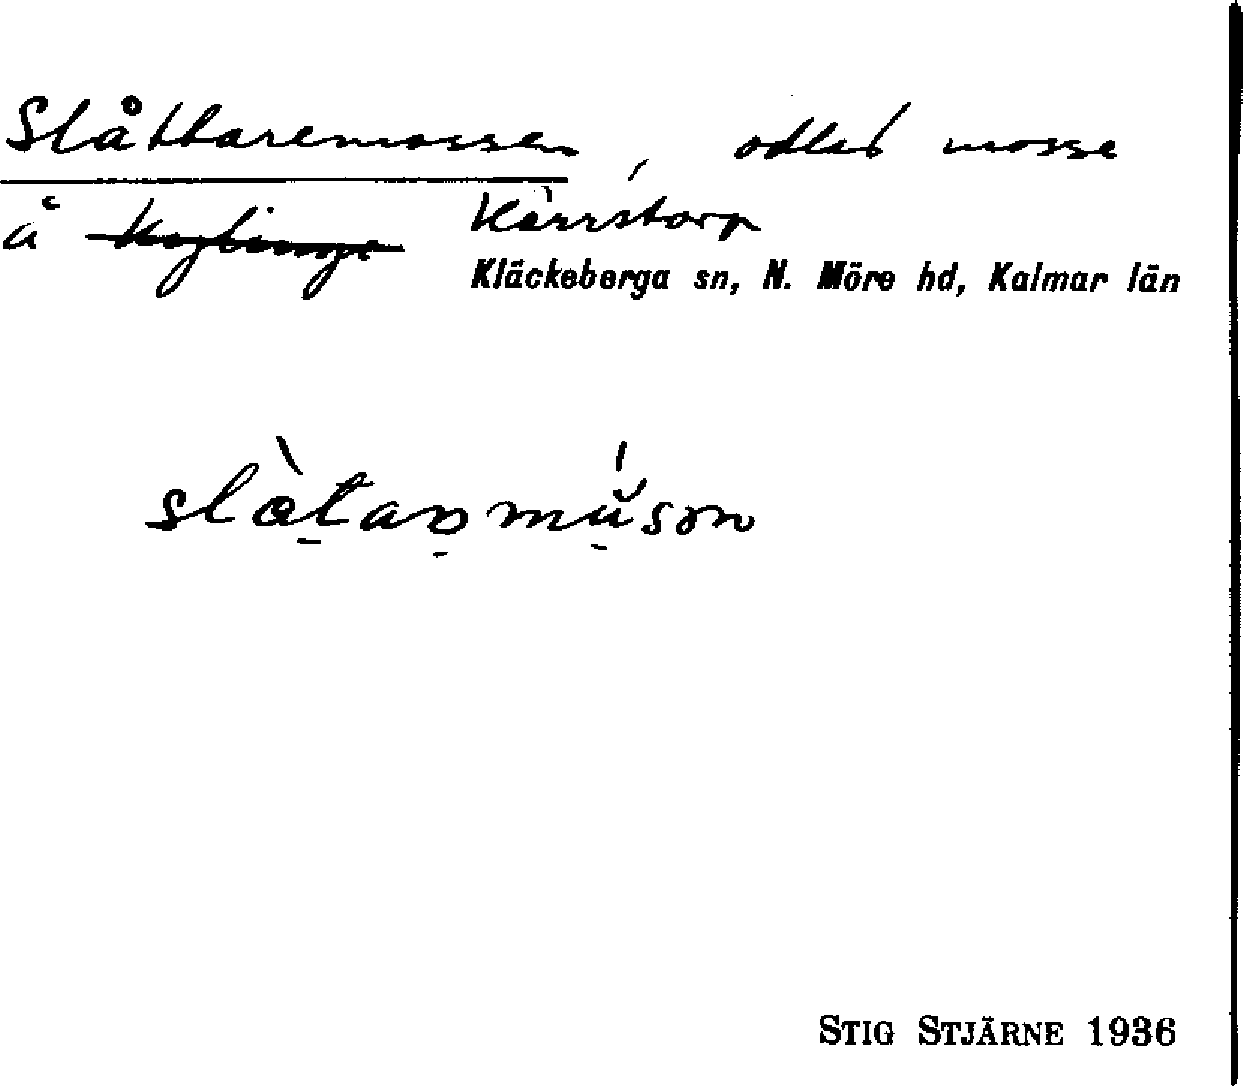 Slåttaremossen, odlad mosse
å Kylinge Kärrstorp
Kläckeberga sn, N. Möre hd, Kalmar län
STIG STJÄRNE 1936